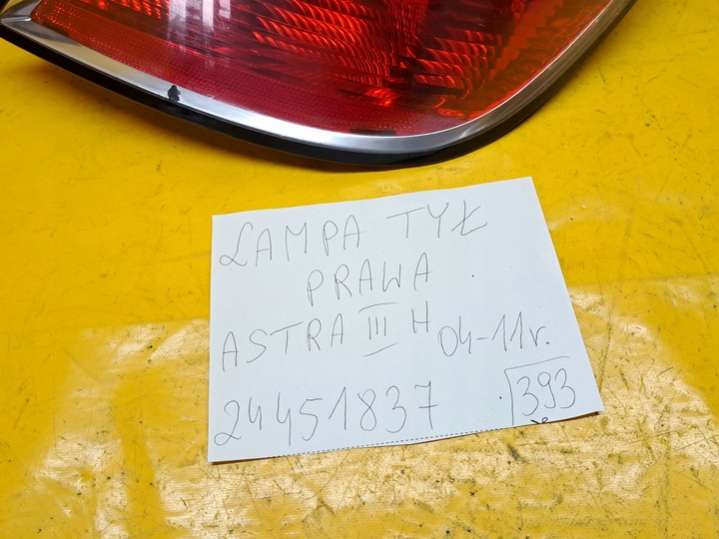 LAMPA TYŁ
PRAWA
ASTRA III H 04-11r.
24451837 393